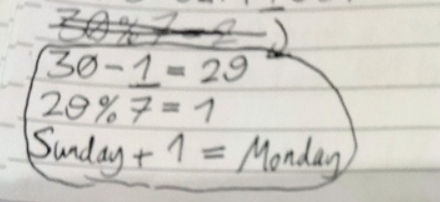 30%7=2
30-1=29
29%7=1
Sunday+1=Monday